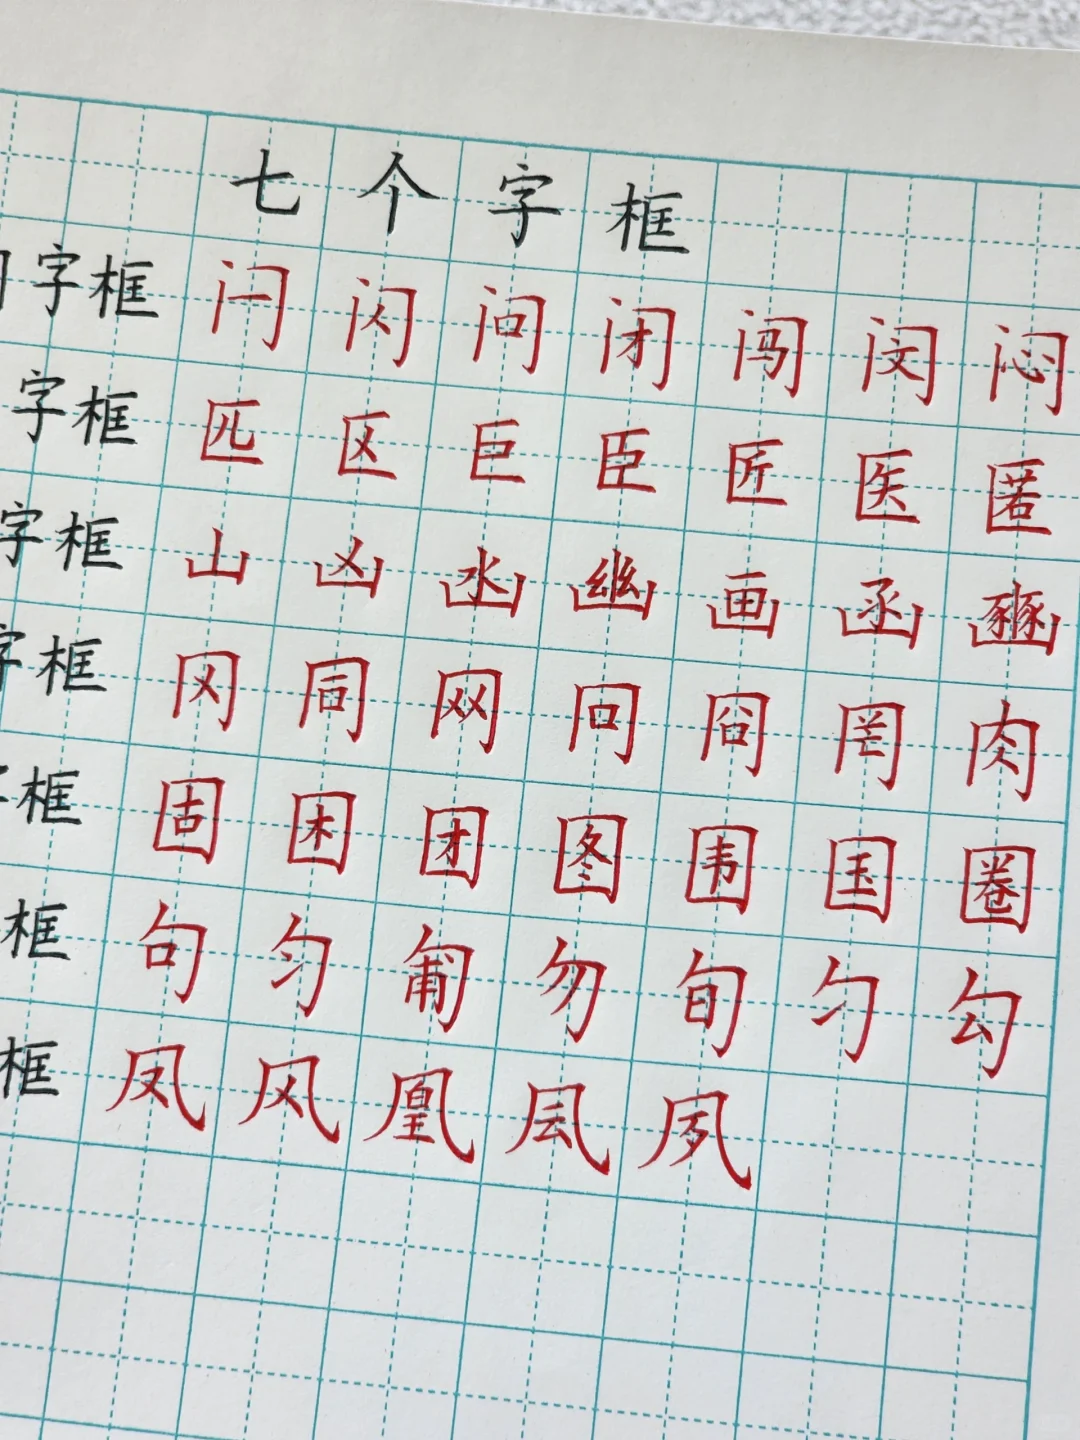 七个字框
字框 闩 闪 问 闭 闯 闵 闷
字框 匹 区 巨 臣 匠 医 匿
字框 山 凶 凼 幽 画 函 豳
字框 冈 同 网 冋 冏 罔 肉
框 固 困 团 图 围 国 圈
框 句 匀 匍 勿 旬 勺 勾
框 凤 风 凰 夙